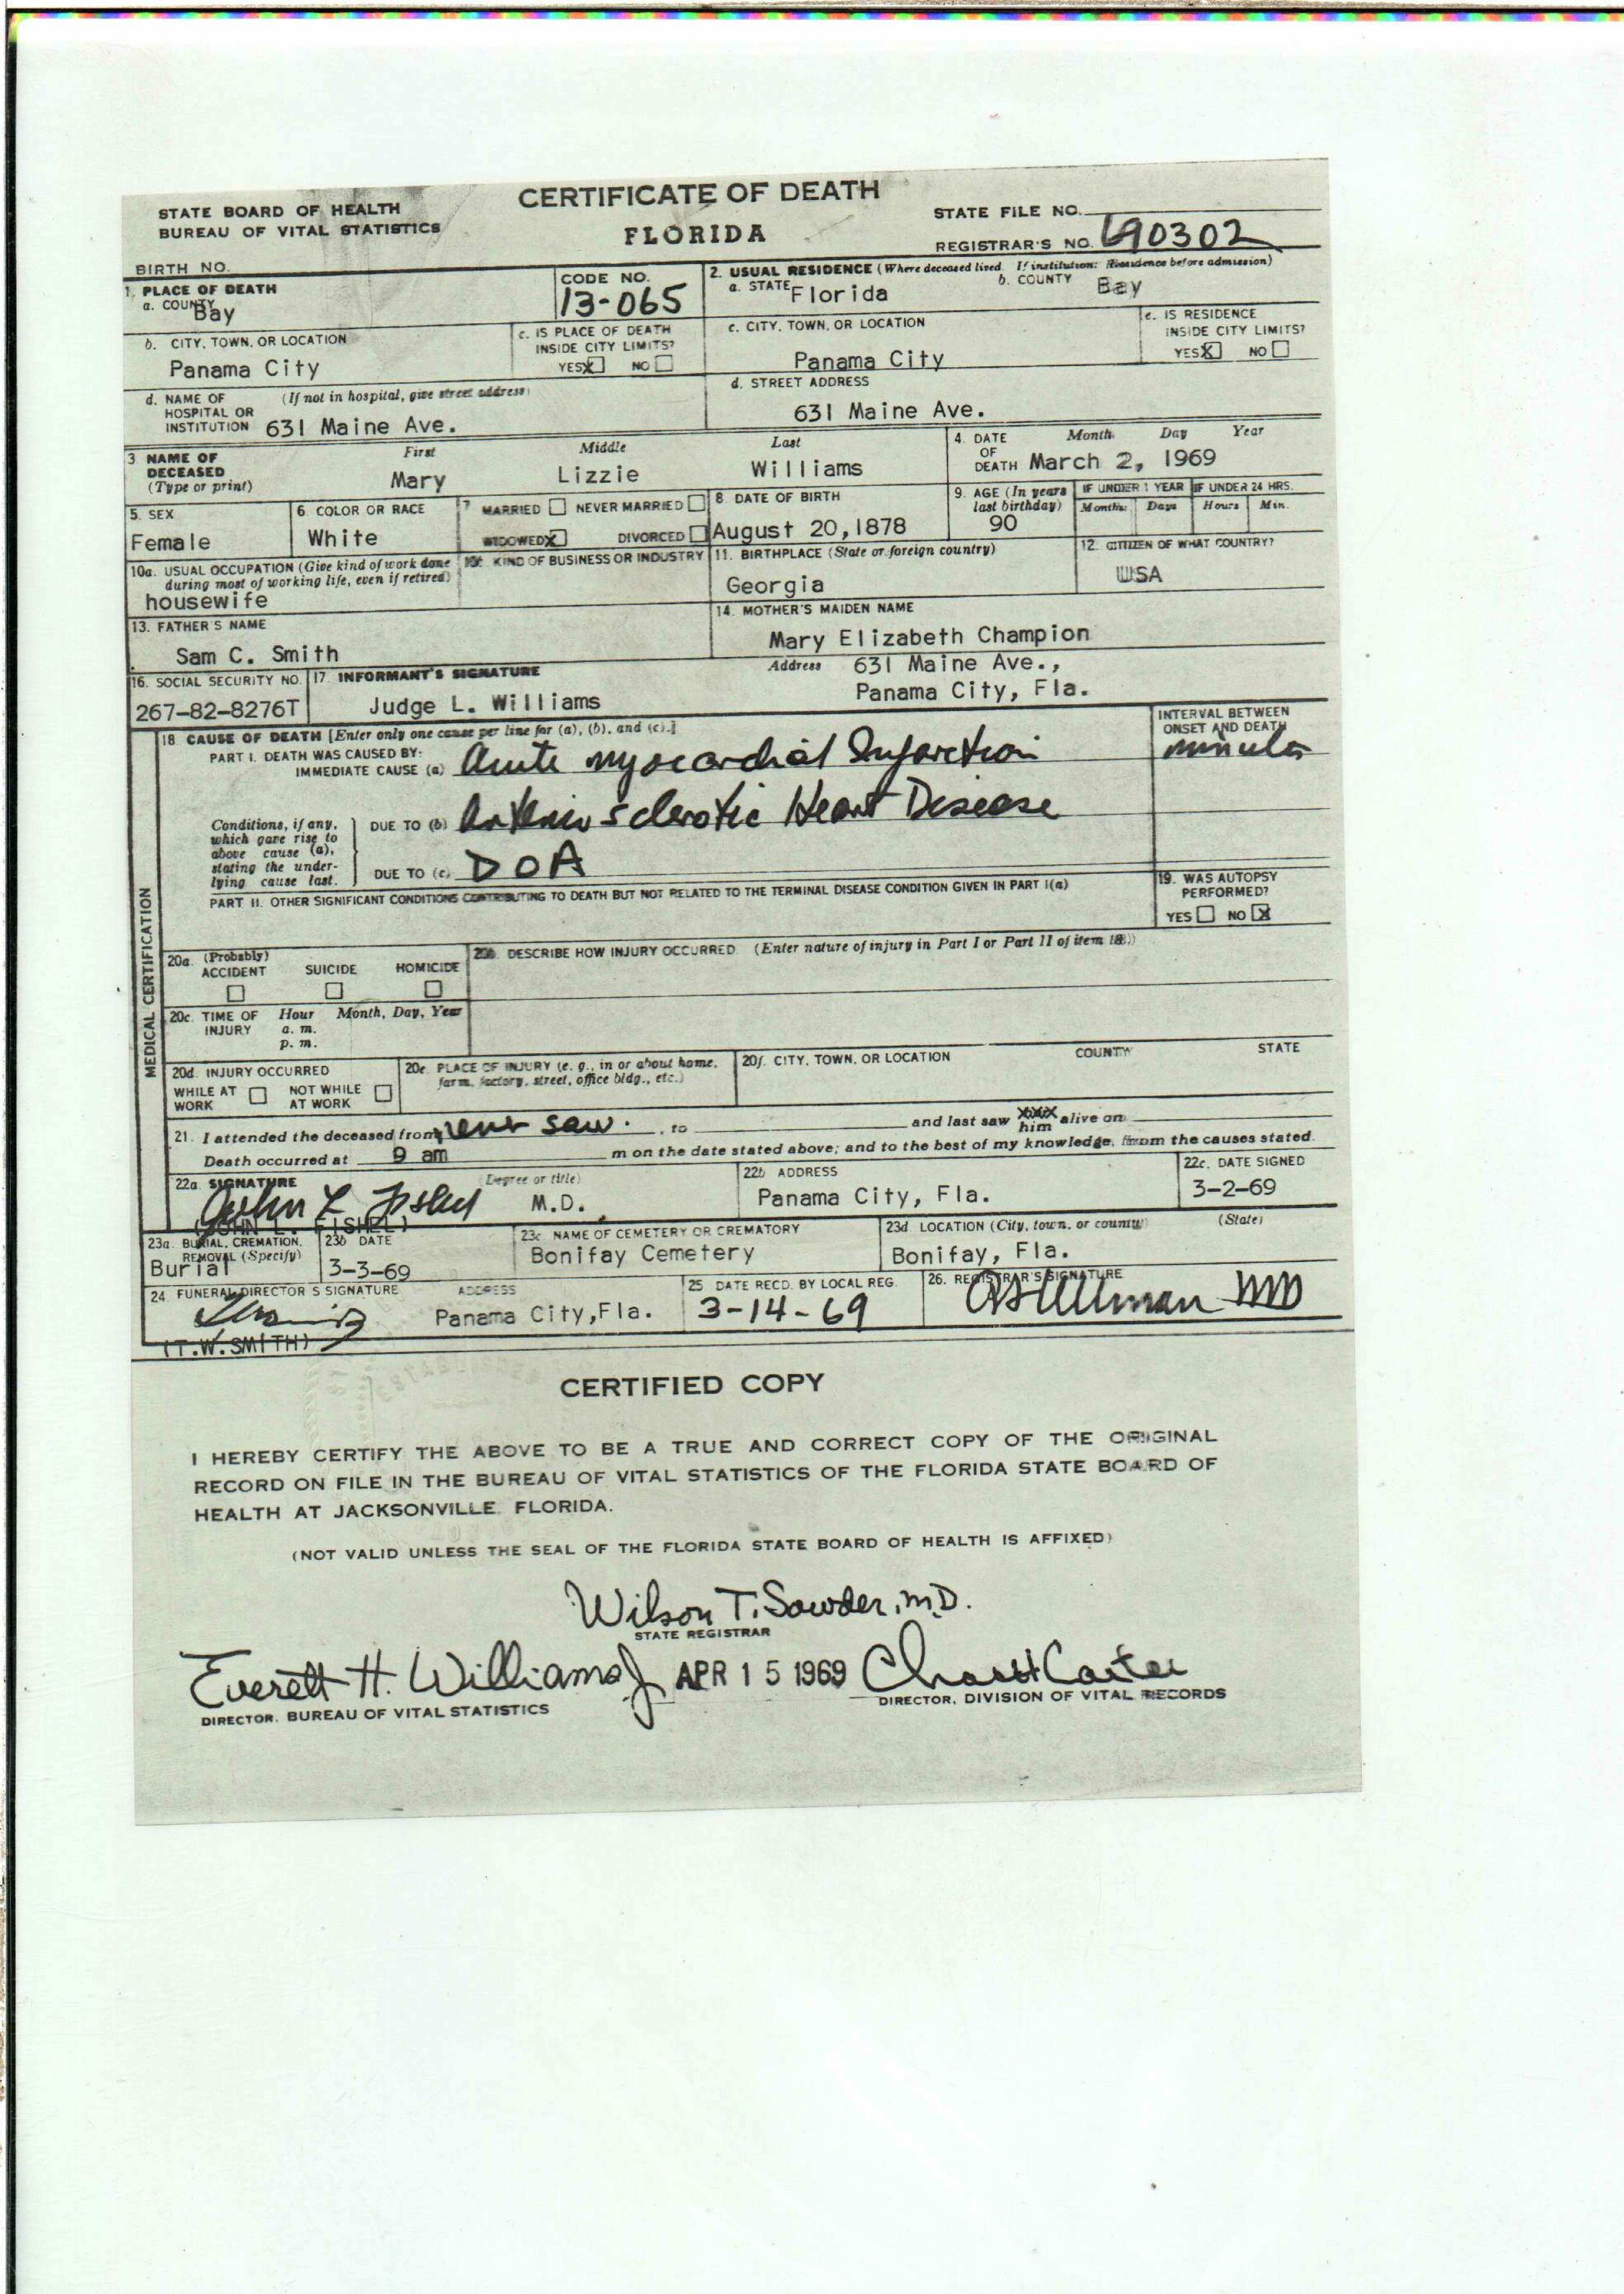 CERTIFICATE OF DEATH
FLORIDA
STATE BOARD OF HEALTH
BUREAU OF VITAL STATISTICS
STATE FILE NO.
REGISTRAR'S NO. 690302
BIRTH NO.
CODE NO.
13-065
1. PLACE OF DEATH
a. COUNTY
Bay
2. USUAL RESIDENCE (Where deceased lived. If institution: Residence before admission)
a. STATE Florida
b. COUNTY Bay
b. CITY, TOWN, OR LOCATION
Panama City
c. IS PLACE OF DEATH
INSIDE CITY LIMITS?
YES X NO
c. CITY, TOWN, OR LOCATION
Panama City
e. IS RESIDENCE
INSIDE CITY LIMITS?
YES X NO
d. NAME OF (If not in hospital, give street address)
HOSPITAL OR
INSTITUTION 631 Maine Ave.
d. STREET ADDRESS
631 Maine Ave.
3 NAME OF
DECEASED
(Type or print)
First Middle Last
Mary Lizzie Williams
4. DATE Month Day Year
OF
DEATH March 2, 1969
5. SEX
Female
6. COLOR OR RACE
White
7 MARRIED NEVER MARRIED
WIDOWED X DIVORCED
8 DATE OF BIRTH
August 20,1878
9. AGE (In years
last birthday)
90
IF UNDER 1 YEAR IF UNDER 24 HRS.
Months Days Hours Min.
10a. USUAL OCCUPATION (Give kind of work done
during most of working life, even if retired)
housewife
KIND OF BUSINESS OR INDUSTRY
11. BIRTHPLACE (State or foreign country)
Georgia
12. CITIZEN OF WHAT COUNTRY?
USA
13. FATHER'S NAME
Sam C. Smith
14. MOTHER'S MAIDEN NAME
Mary Elizabeth Champion
16. SOCIAL SECURITY NO.
267-82-8276T
17. INFORMANT'S SIGNATURE
Judge L. Williams
Address 631 Maine Ave.,
Panama City, Fla.
18 CAUSE OF DEATH [Enter only one cause per line for (a), (b), and (c).]
PART I. DEATH WAS CAUSED BY:
IMMEDIATE CAUSE (a) Acute myocardial Infarction
INTERVAL BETWEEN
ONSET AND DEATH
minutes
Conditions, if any,
which gave rise to
above cause (a),
stating the under-
lying cause last.
DUE TO (b) Arteriosclerotic Heart Disease
DUE TO (c) DOA
PART II. OTHER SIGNIFICANT CONDITIONS CONTRIBUTING TO DEATH BUT NOT RELATED TO THE TERMINAL DISEASE CONDITION GIVEN IN PART I(a)
19. WAS AUTOPSY
PERFORMED?
YES NO X
MEDICAL CERTIFICATION
20a. (Probably)
ACCIDENT SUICIDE HOMICIDE
DESCRIBE HOW INJURY OCCURRED (Enter nature of injury in Part I or Part II of item 18.)
20c. TIME OF Hour Month, Day, Year
INJURY a. m.
p. m.
20d. INJURY OCCURRED
WHILE AT NOT WHILE
WORK AT WORK
20e. PLACE OF INJURY (e. g., in or about home,
farm, factory, street, office bldg., etc.)
20f. CITY, TOWN, OR LOCATION COUNTY STATE
21. I attended the deceased from never saw. , to and last saw him alive on
Death occurred at 9 am m on the date stated above; and to the best of my knowledge, from the causes stated.
22a. SIGNATURE (Degree or title)
John L Fishel M.D.
(JOHN L. FISHEL)
22b ADDRESS
Panama City, Fla.
22c. DATE SIGNED
3-2-69
23a. BURIAL, CREMATION,
REMOVAL (Specify)
Burial
23b DATE
3-3-69
23c NAME OF CEMETERY OR CREMATORY
Bonifay Cemetery
23d LOCATION (City, town, or county) (State)
Bonifay, Fla.
24 FUNERAL DIRECTOR'S SIGNATURE ADDRESS
Panama City,Fla.
(T.W.SMITH)
25 DATE RECD. BY LOCAL REG.
3-14-69
26. REGISTRAR'S SIGNATURE
MD
CERTIFIED COPY
I HEREBY CERTIFY THE ABOVE TO BE A TRUE AND CORRECT COPY OF THE ORIGINAL
RECORD ON FILE IN THE BUREAU OF VITAL STATISTICS OF THE FLORIDA STATE BOARD OF
HEALTH AT JACKSONVILLE. FLORIDA.
(NOT VALID UNLESS THE SEAL OF THE FLORIDA STATE BOARD OF HEALTH IS AFFIXED)
Wilson T. Sowder, M.D.
STATE REGISTRAR
Everett H. Williams Jr APR 15 1969 Chas H Carter
DIRECTOR, BUREAU OF VITAL STATISTICS
DIRECTOR, DIVISION OF VITAL RECORDS